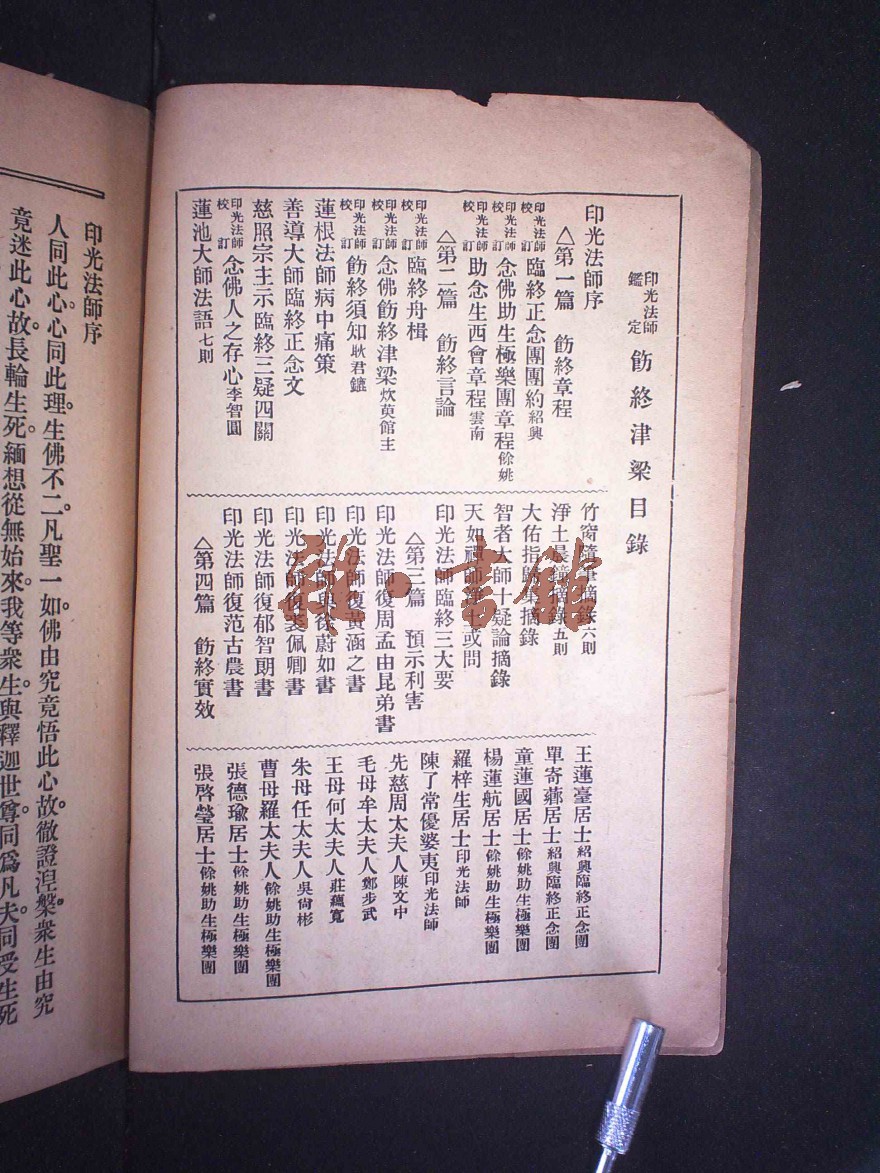 印光法師鑑定 飭終津梁目錄
印光法師序
△第一篇 飭終章程
印光法師校訂 臨終正念團團約 紹興
印光法師校訂 念佛助生極樂團章程 餘姚
印光法師校訂 助念生西會章程 雲南
△第二篇 飭終言論
印光法師校訂 臨終舟楫
印光法師校訂 念佛飭終津梁 炊萸館主
印光法師校訂 飭終須知 耿君鑣
蓮根法師病中痛策
善導大師臨終正念文
慈照宗主示臨終三疑四關
印光法師校訂 念佛人之存心 李智圓
蓮池大師法語 七則
竹窗隨筆摘錄 六則
淨土晨鐘摘錄 五則
大佑指歸集摘錄
智者大師十疑論摘錄
天如禪師淨土或問
印光法師臨終三大要
△第三篇 預示利害
印光法師復周孟由昆弟書
印光法師復黃涵之書
印光法師與徐蔚如書
印光法師復裘佩卿書
印光法師復郁智朗書
印光法師復范古農書
△第四篇 飭終實效
王蓮臺居士 紹興臨終正念團
單寄蘅居士 紹興臨終正念團
童蓮國居士 餘姚助生極樂團
楊蓮航居士 餘姚助生極樂團
羅梓生居士 印光法師
陳了常優婆夷 印光法師
先慈周太夫人 陳文中
毛母牟太夫人 鄭步武
王母何太夫人 莊蘊寬
朱母任太夫人 吳尙彬
曹母羅太夫人 餘姚助生極樂團
張德瑜居士 餘姚助生極樂團
張啓瑩居士 餘姚助生極樂團
印光法師序
人同此心。心同此理。生佛不二。凡聖一如。佛由究竟悟此心。故徹證涅槃。衆生由究
竟迷此心。故長輪生死。緬想從無始來。我等衆生。與釋迦世尊。同爲凡夫。同受生死
雜·書館